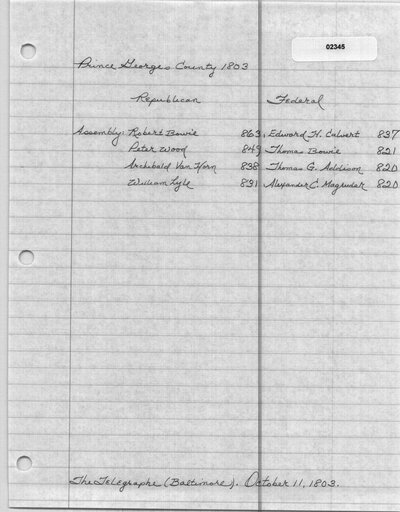 02345
Prince Georges County 1803
Republican Federal
Assembly: Robert Bowie 863, Edward H. Calvert 837
Peter Wood 849 Thomas Bowie 821
Archibald Van Horn 838 Thomas G. Addison 820
William Lyle 831 Alexander C. Magruder 820
The Telegraphe (Baltimore). October 11, 1803.